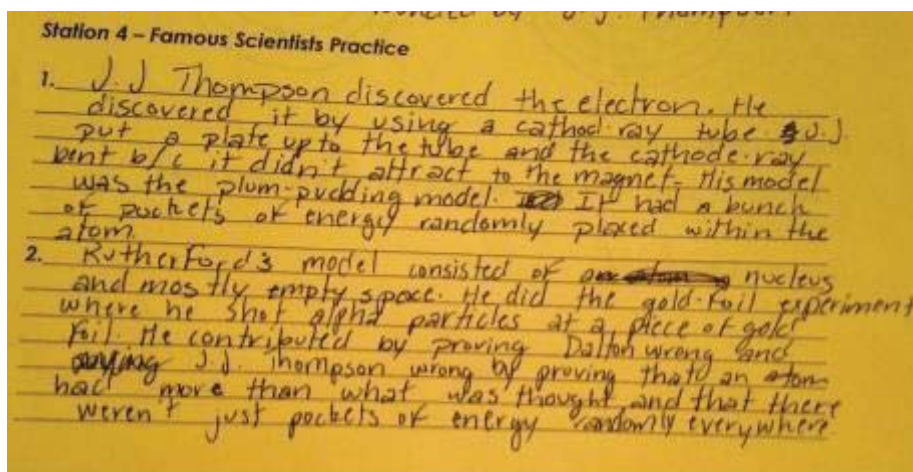 Station 4 – Famous Scientists Practice
1. J.J Thompson discovered the electron. He
discovered it by using a cathod ray tube. J.J.
put a plate up to the tube and the cathode ray
bent b/c it didn't attract to the magnet. His model
was the plum-pudding model. It had a bunch
of pockets of energy randomly placed within the
atom.
2. Rutherford's model consisted of nucleus
and mostly empty space. He did the gold-foil experiment
where he shot alpha particles at a piece of gold
foil. He contributed by proving Dalton wrong and
J.J. Thompson wrong by proving that an atom
had more than what was thought and that there
weren't just pockets of energy randomly everywhere